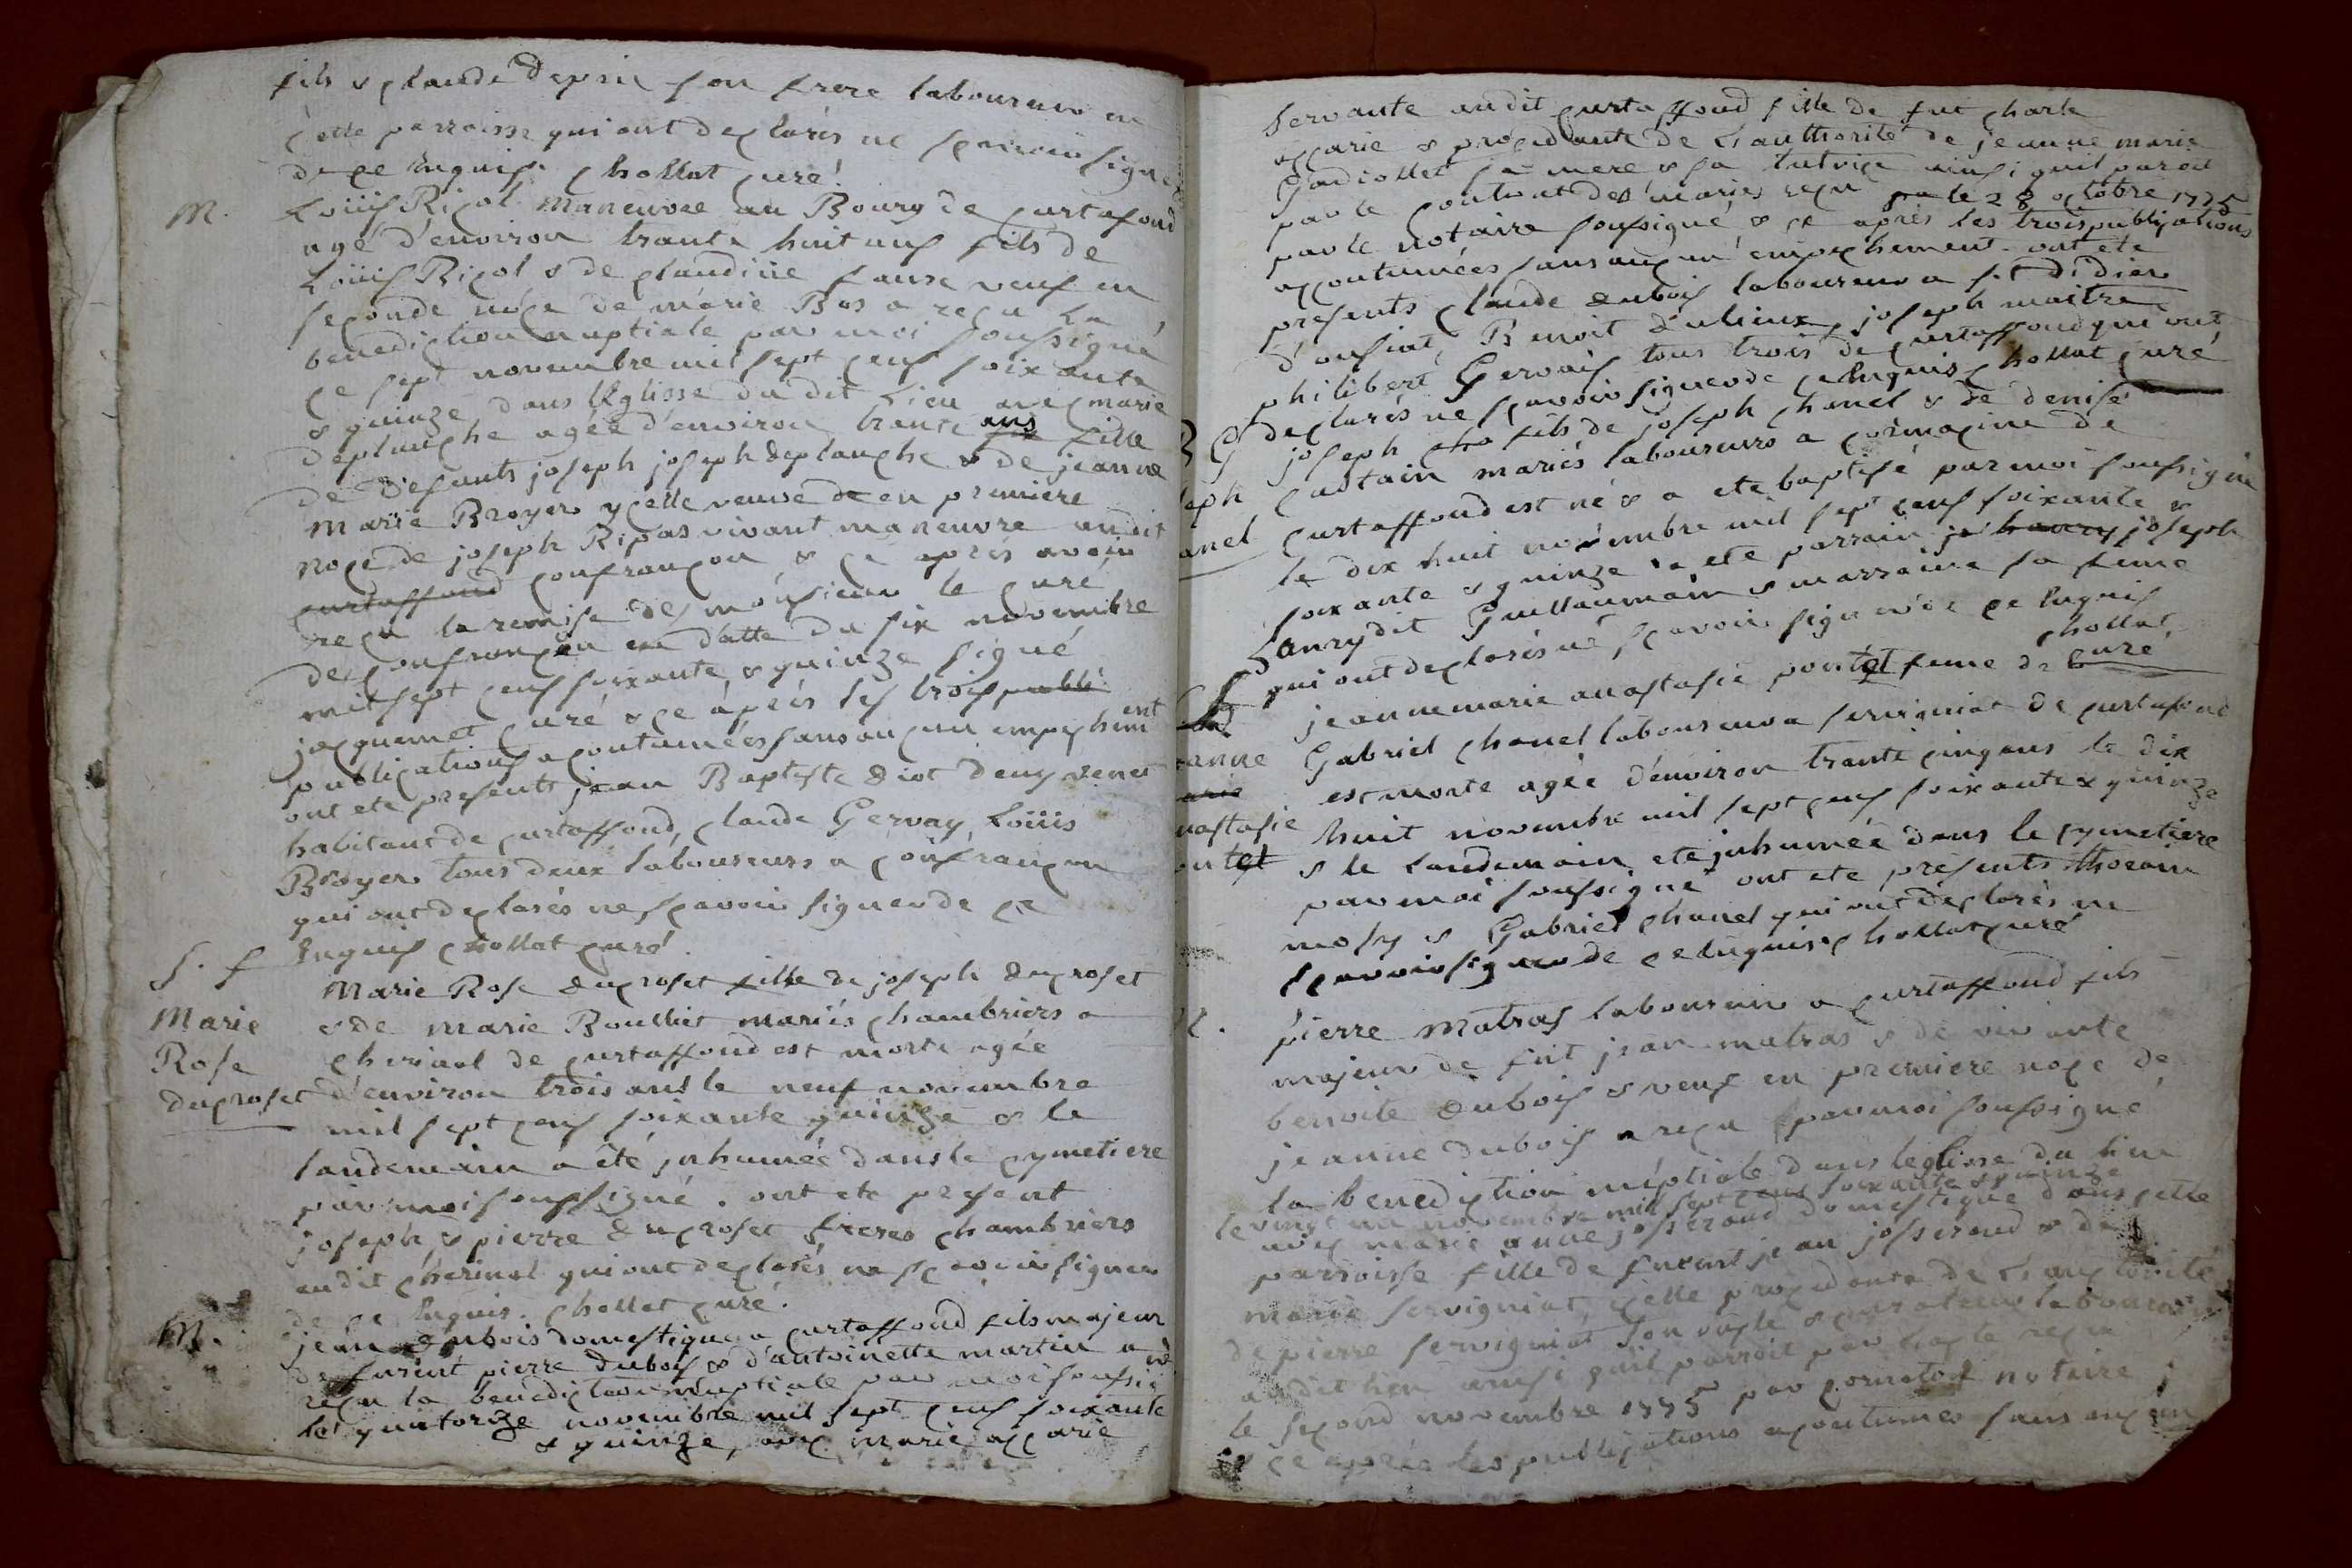 fils & claude depsie son frere laboureur en
cette parroisse qui ont declarés ne scavoir signer
de ce enquis. chollat curé.
M. Loüis Rigol maneuvre au Bourg de curtafond
agé d'environ trante huit ans fils de
Loüis Rigol & de claudine fause veuf en
seconde noce de marie Bos a reçu la
benediction nuptiale par moi soussigné
ce sept novembre mil sept cens soixante
& quinze dans l'Eglisse du dit Lieu avec marie
deplanche agée d'environ trante ans fille
de defunts joseph joseph deplanche & de jeanne
marie Broyer ycelle veuve de en premiere
noce de joseph Ripas vivant maneuvre audit
curtaffond confrançon & ce après avoir
reçu la remise de monsieur le curé
de confrançon en datte du six novembre
mil sept cens soixante & quinze signé
jacquemet curé & ce après les trois publi
publications acoutumées sans aucun empechement
ont ete presents jean Baptiste diot deux venet
habitant de curtaffond, claude Gervay, Loüis
Broyer tous deux laboureurs a confrançon
qui ont declarés ne scavoir signer de ce
enquis chollat curé.
S. f
Marie Rose ducroset fille de joseph ducroset
Marie & de marie Boullier mariés chambriers a
Rose cherinal de curtaffond est morte agée
ducroset d'environ trois ans le neuf novembre
mil sept cens soixante quinze & le
landemain a été inhumée dans le cymetiere
par moi soussigné. ont ete present
joseph & pierre ducroset freres chambriers
audit cherinal qui ont declarés ne scavoir signer
de ce enquis. chollat curé.
M. jean dubois domestique a curtaffond fils majeur
de furent pierre dubois & d'antoinette martin a
reçu la benediction nuptiale par moi soussigné
le quatorze novembre mil sept cens soixante
& quinze, avec marie accarie
servante audit curtaffond fille de fut charle
accarie & procedante de l'authorité de jeanne marie
Gadiollet sa mere & sa tutrice ainsi quil paroit
par le contrat des maries reçu le 28 octobre 1775
par le notaire soussigné & ce après les trois publications
accoutumées sans aucun empechement. ont ete
presents claude dubois laboureur a st didier
d'aussiat, Benoit dulieux, joseph maitre
philibert Gervais tous trois de curtaffond qui ont
declarés ne scavoir signer de ce enquis chollat curé
B G joseph cha fils de joseph chanel & de denise
eph castain mariés laboureurs a cormacine de
anel curtaffond est né & a ete baptisé par moi soussigné
le dix huit novembre mil sept cens soixante &
soixante & quinze a ete parrain jo laury joseph
Laury dit Guillaumain & marraine sa feme
qui ont declarés ne scavoir signer de ce enquis
chollat
curé
jeanne marie anastasie pontet feme de
anne Gabriel chanel laboureur a servigniat de curtafond
arie est morte agée d'environ trante cinq ans le dix
nastasie huit novembre mil sept cens soixante & quinze
ontet & le landemain ete inhumée dans le cymetiere
par moi soussigné ont ete presents
& Gabriel chanel qui ont declarés ne
scavoir signer de ce enquis chollat curé
pierre Matras laboureur a curtaffond fils
majeur de fut jean matras & de vivante
benoite dubois & veuf en premiere noce de
jeanne dubois a reçu par moi soussigné
la benediction nuptiale dans leglisse du lieu
le vingt un novembre mil sept cens soixante & quinze
avec marie anne josserand domestique dans cette
parroisse fille de furent jean josserand & de
marie servigniat, ycelle procedante de l'auctorité
de pierre servigniat son oncle & curateur laboureur
audit lieu ainsi quil parroit par l'acte reçu
le second novembre 1775 par notaire
& ce après les publications acoutumes sans aucun